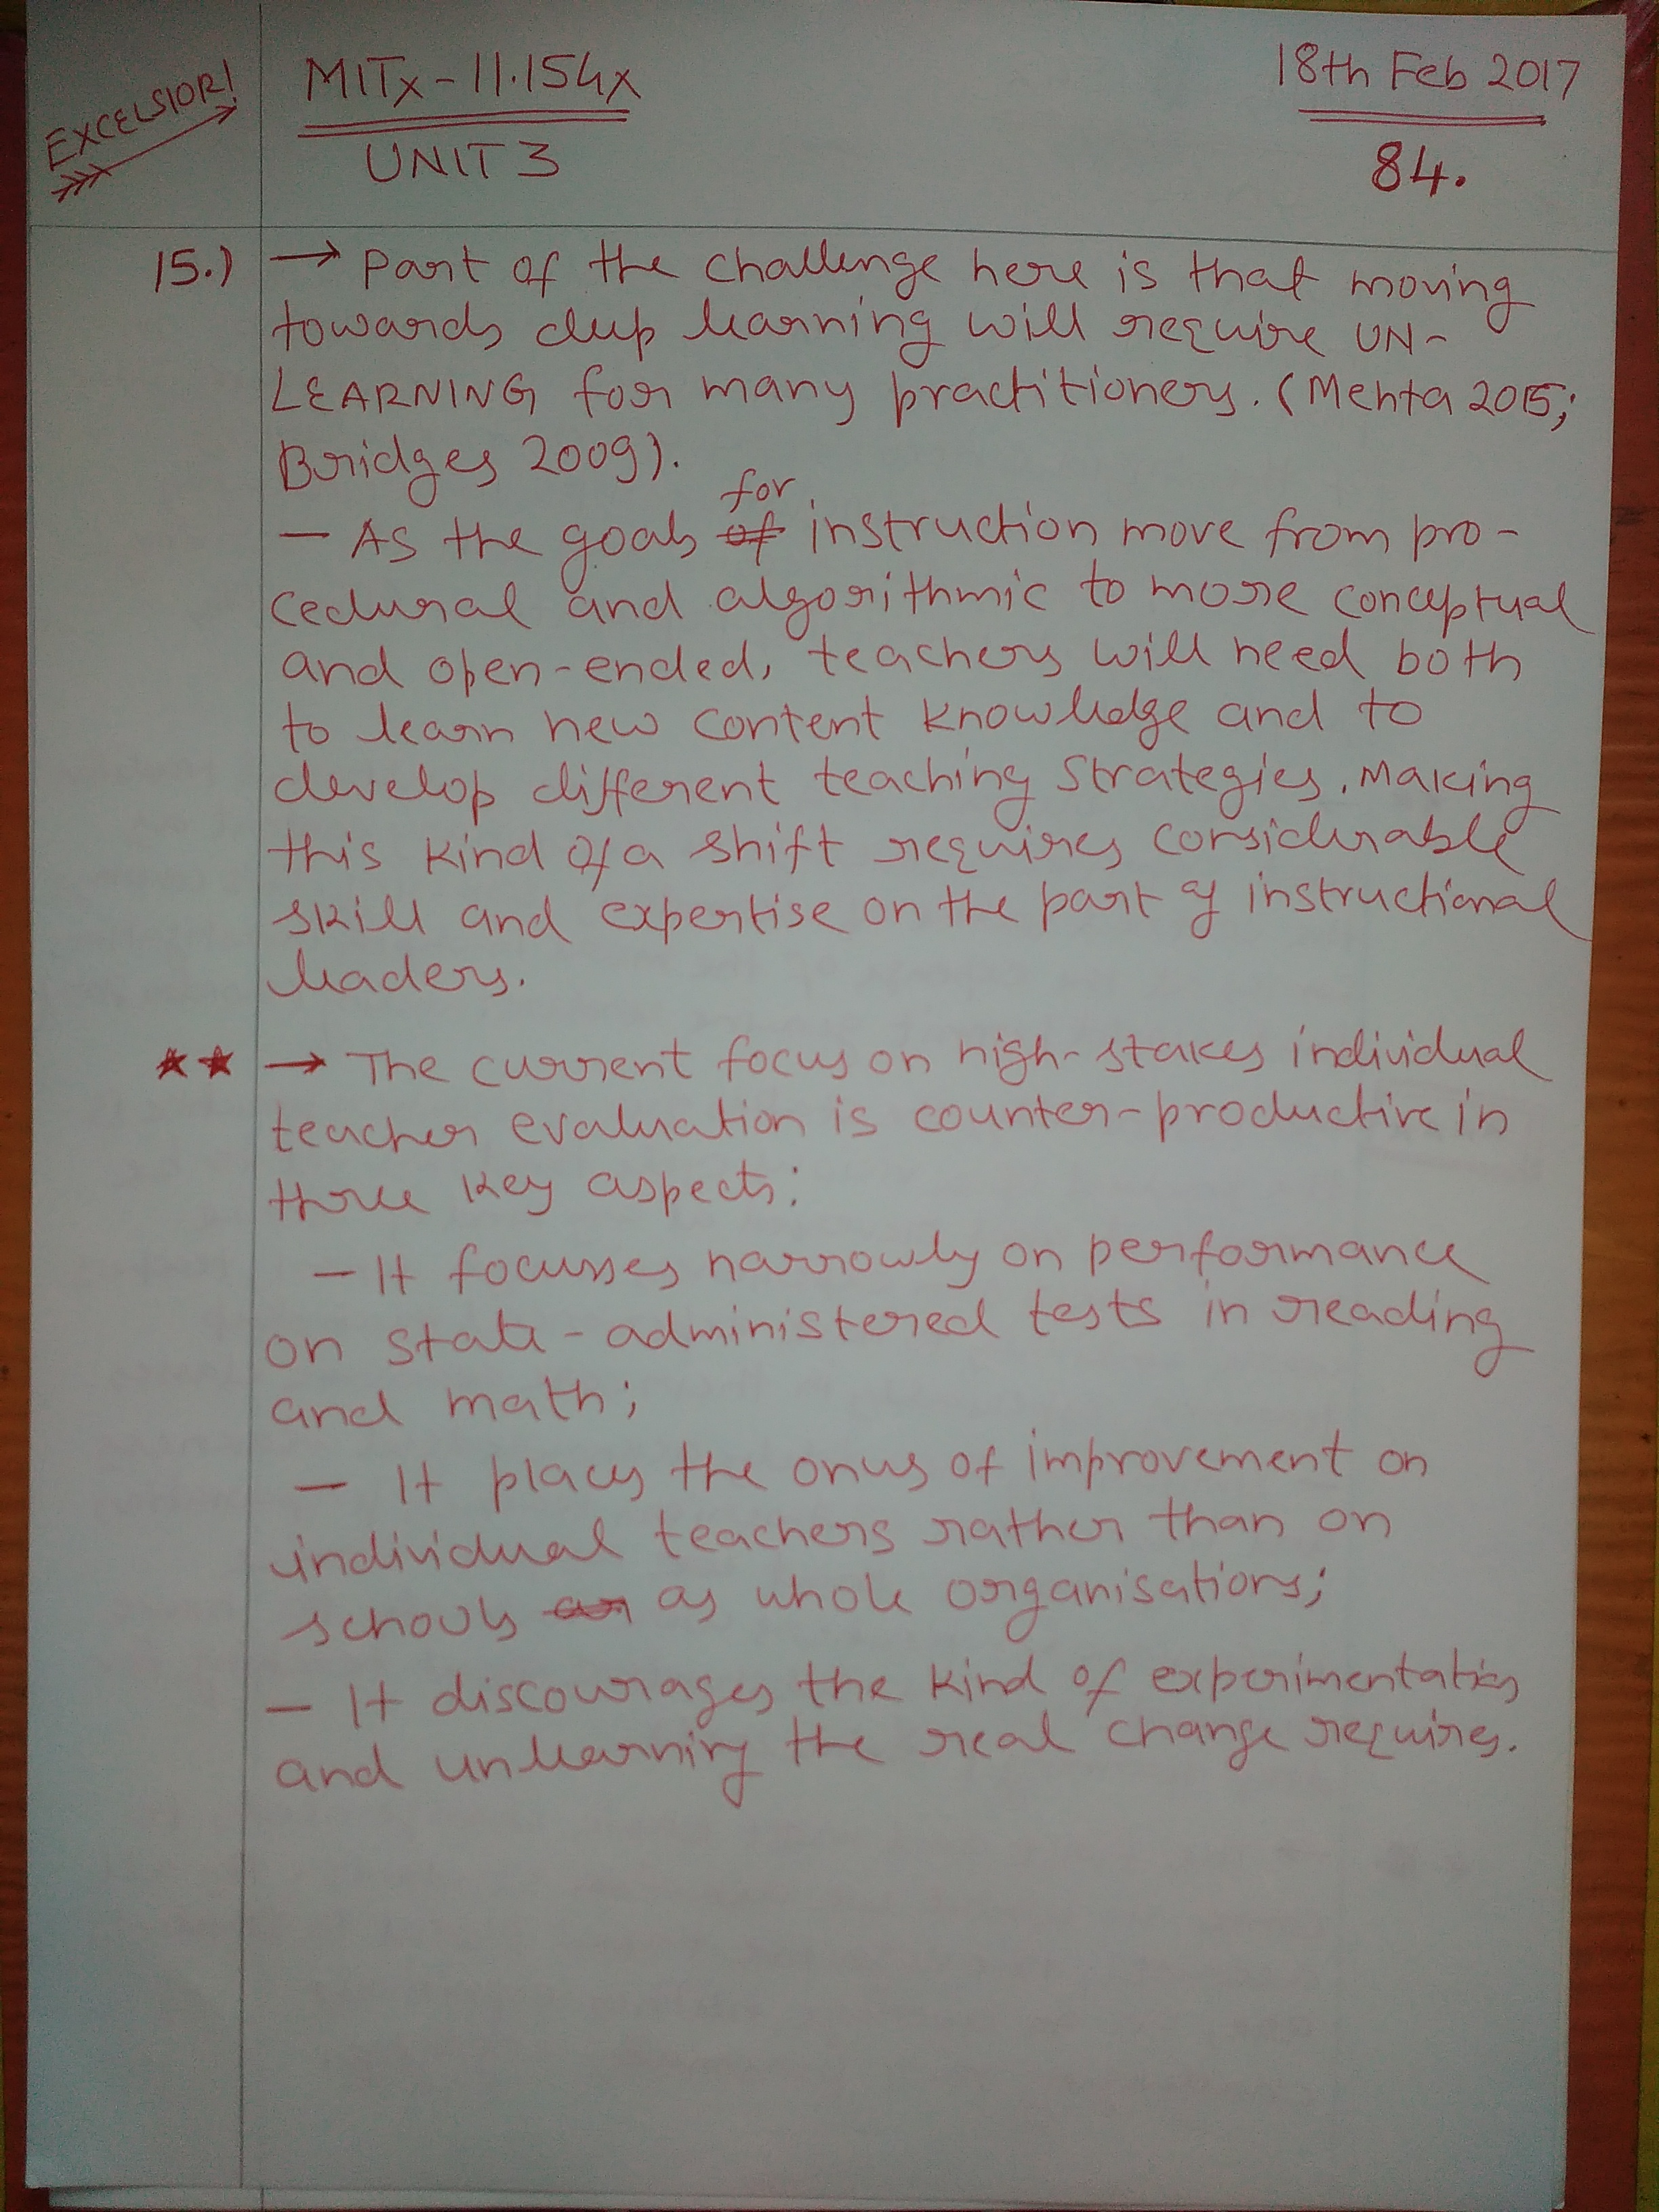 EXCELSIOR!
MITx-11.154x
UNIT 3
18th Feb 2017
84.
15.) → Part of the challenge here is that moving
towards deep learning will require UN-
LEARNING for many practitioners. (Mehta 2015;
Bridges 2009).
for
- As the goals of instruction move from pro-
cedural and algorithmic to more conceptual
and open-ended, teachers will need both
to learn new content knowledge and to
develop different teaching strategies. Making
this kind of a shift requires considerable
skill and expertise on the part of instructional
leaders.
★★ → The current focus on high-stakes individual
teacher evaluation is counter-productive in
three key aspects:
- It focusses narrowly on performance
on state-administered tests in reading
and math;
- It places the onus of improvement on
individual teachers rather than on
schools as whole organisations;
- It discourages the kind of experimentation
and unlearning the real change requires.